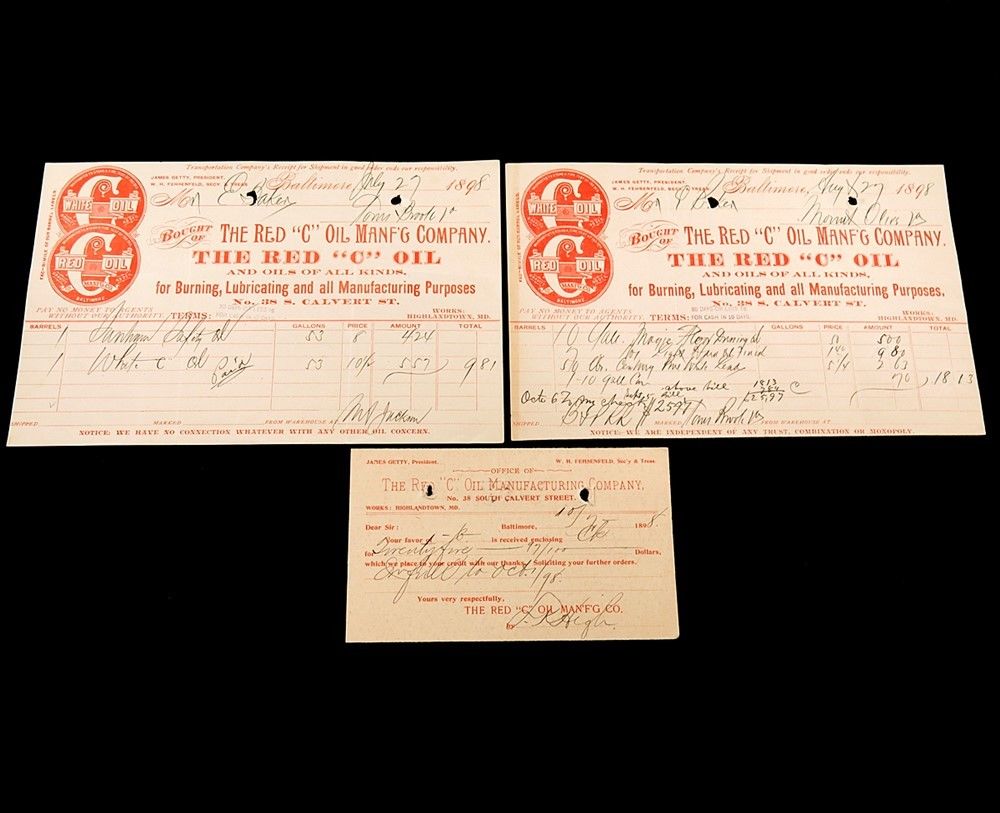 Transportation Company's Receipt for Shipment in good order ends our responsibility.
JAMES GETTY, PRESIDENT.
W. H. FEHSENFELD, SECY. & TREAS.
Baltimore, 27 1898
Mr C Baker
WHITE OIL
RED OIL
BALTIMORE
BOUGHT OF THE RED "C" OIL MANF'G COMPANY.
THE RED "C" OIL
AND OILS OF ALL KINDS,
for Burning, Lubricating and all Manufacturing Purposes
No. 38 S. CALVERT ST.
PAY NO MONEY TO AGENTS
WITHOUT OUR AUTHORITY.
TERMS:
WORKS:
HIGHLANDTOWN, MD.
BARRELS GALLONS PRICE AMOUNT TOTAL
1 Safety Oil 53 8 424
1 White C Oil 53 10½ 557 981
Paid
SHIPPED MARKED FROM WAREHOUSE AT
NOTICE: WE HAVE NO CONNECTION WHATEVER WITH ANY OTHER OIL CONCERN.
Transportation Company's Receipt for Shipment in good order ends our responsibility.
JAMES GETTY, PRESIDENT
W. H. FEHSENFELD, SECY & TREAS
Baltimore, 27 1898
Mr C Baker
WHITE OIL
RED OIL
BALTIMORE
BOUGHT OF THE RED "C" OIL MANF'G COMPANY.
THE RED "C" OIL
AND OILS OF ALL KINDS,
for Burning, Lubricating and all Manufacturing Purposes.
No. 38 S. CALVERT ST.
PAY NO MONEY TO AGENTS
WITHOUT OUR AUTHORITY.
TERMS: FOR CASH IN 10 DAYS.
WORKS:
HIGHLANDTOWN, MD.
BARRELS GALLONS PRICE AMOUNT TOTAL
10 Galls. Magic Floor 50 500
980
50 lbs. Century White Lead 5¼ 263
1-10 gall Can 70 1813
above bill 1813
784
$2597
Oct 6 By my check $2597
SHIPPED MARKED FROM WAREHOUSE AT
NOTICE: WE ARE INDEPENDENT OF ANY TRUST, COMBINATION OR MONOPOLY.
JAMES GETTY, President. W. H. FEHSENFELD, Sec'y & Treas.
OFFICE OF
THE RED "C" OIL MANUFACTURING COMPANY,
No. 38 SOUTH CALVERT STREET.
WORKS: HIGHLANDTOWN, MD.
Dear Sir: Baltimore, 10/7 1898.
Your favor is received enclosing Ck
for Twenty five 97/100 Dollars,
which we place to your credit with our thanks. Soliciting your further orders.
In full to Oct 1/98.
Yours very respectfully,
THE RED "C" OIL MAN'F'G CO.
by High